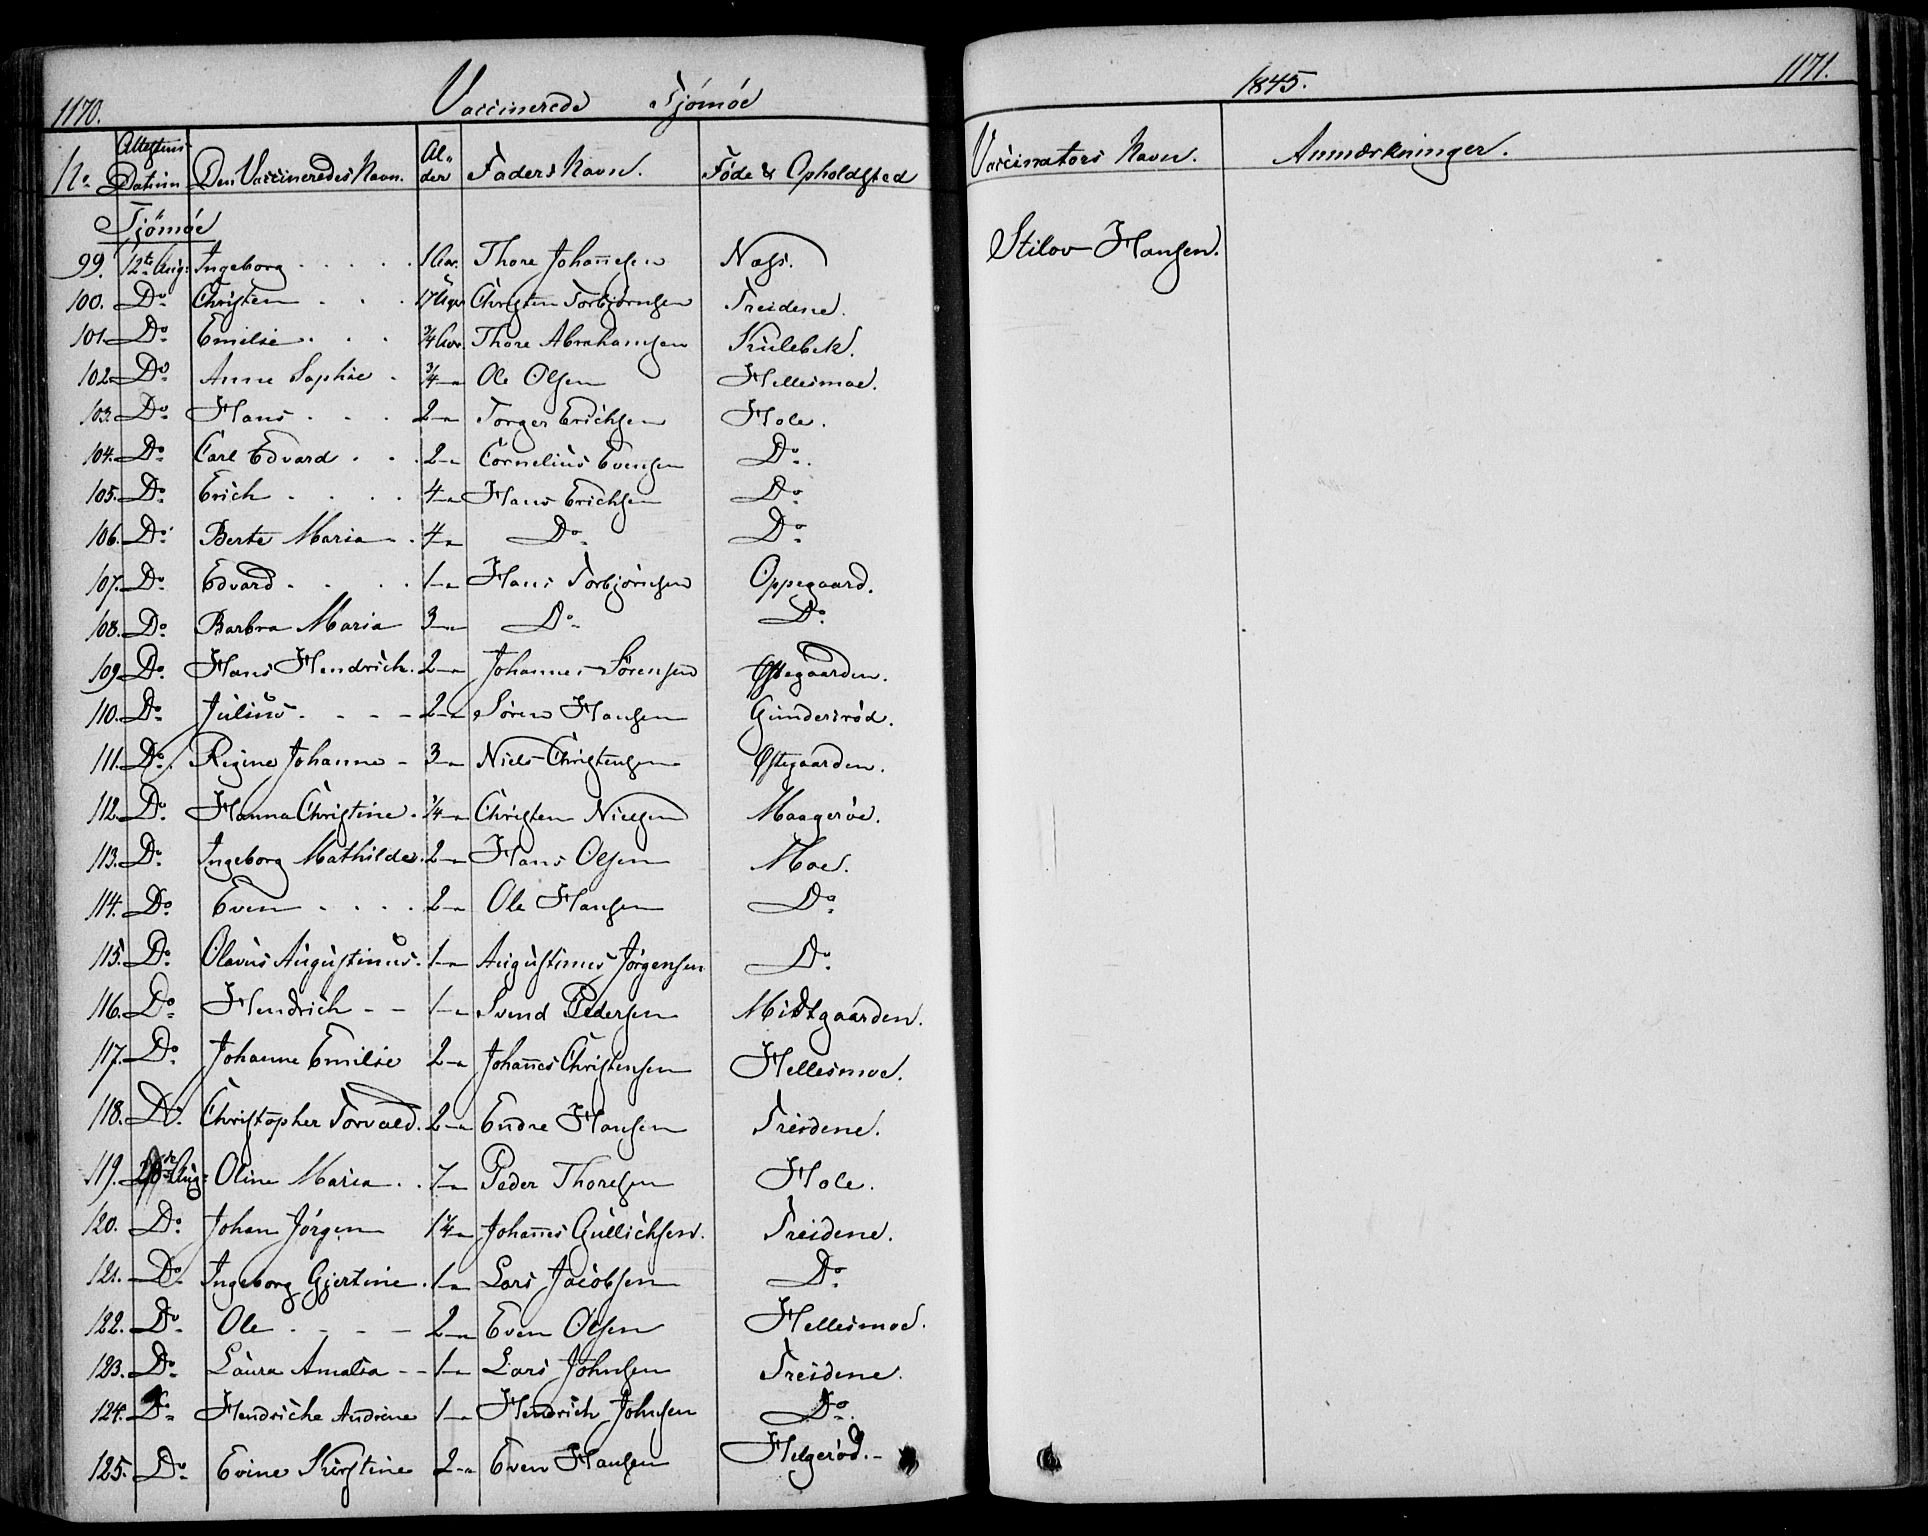 1170. Vaccinerede Tjömöe
No. Attestens Datum Den Vaccineredes Navn. Al„der Faders Navn. Føde & Opholdsted
Tjömöe
99. 12te Aug: Ingeborg . . . . . 1 Aar. Thore Johañesen Næss.
100. Do Christen . . . 17 Uger Christen Torbjörnsen Treidene.
101. Do Emilie . . . 3/4 Aar. Thore Abrahamsen Kulebek.
102. Do Anne Sophie . 3/4 - Ole Olsen Hellesmoe.
103. Do Hans . . . 2 - Torger Erichsen Hole.
104. Do Carl Edvard . . . 2 - Cornelius Evensen Do.
105. Do Erich . . . . 4 - Hans Erichsen Do
106. Do Berte Maria . 4 - Do Do
107. Do Edvard . . . . 1 - Hans Torbjörnsen Oppegaard.
108. Do Barbra Maria 3 - Do Do
109 Do Hans Hendrich. 2 - Johannes Sörensen Østegaarden.
110. Do Julius . - - - 2 - Sören Hansen Gunderröd.
111. Do. Regine Johanne - 3 - Niels Christensen Østegaarden.
112. Do Hanna Christine. 1/4 - Christen Nielsen Maageröe.
113. Do Ingeborg Mathilde. 2 - Hans Olsen Moe.
114. Do Even . . . . 2 - Ole Hansen Do
115. Do Olavus Augustinus. 1 - Augustinus Jörgensen Do
116. Do Hendrich - - 1 - Svend Pedersen Midtgaarden.
117. Do Johanne Emilie 2 - Johañes Christensen Hellesmoe.
118. Do Christopher Torvald. 2 - Endre Hansen Treidene.
119. Aug: Oline Maria . . 7 - Peder Thoresen Hole.
120. Do Johan Jörgen 1 1/4 - Johañes Gullichsen. Treidene.
121. Do Ingeborg Gjertine. 1 - Lars Jacobsen Do
122. Do Ole . - - - 2 - Even Olsen Hellesmoe.
123. Do Laura Amalia - - 1 - Lars Johnsen Treidene.
124. Do Hendriche Andrine 1 - Hendrich Johnsen Do.
125. Do Evine Kirstine 2 - Even Hansen Helgeröd. -
1845. 1171.
Vaccinators Navn. Anmærkninger.
Stilov Hansen.